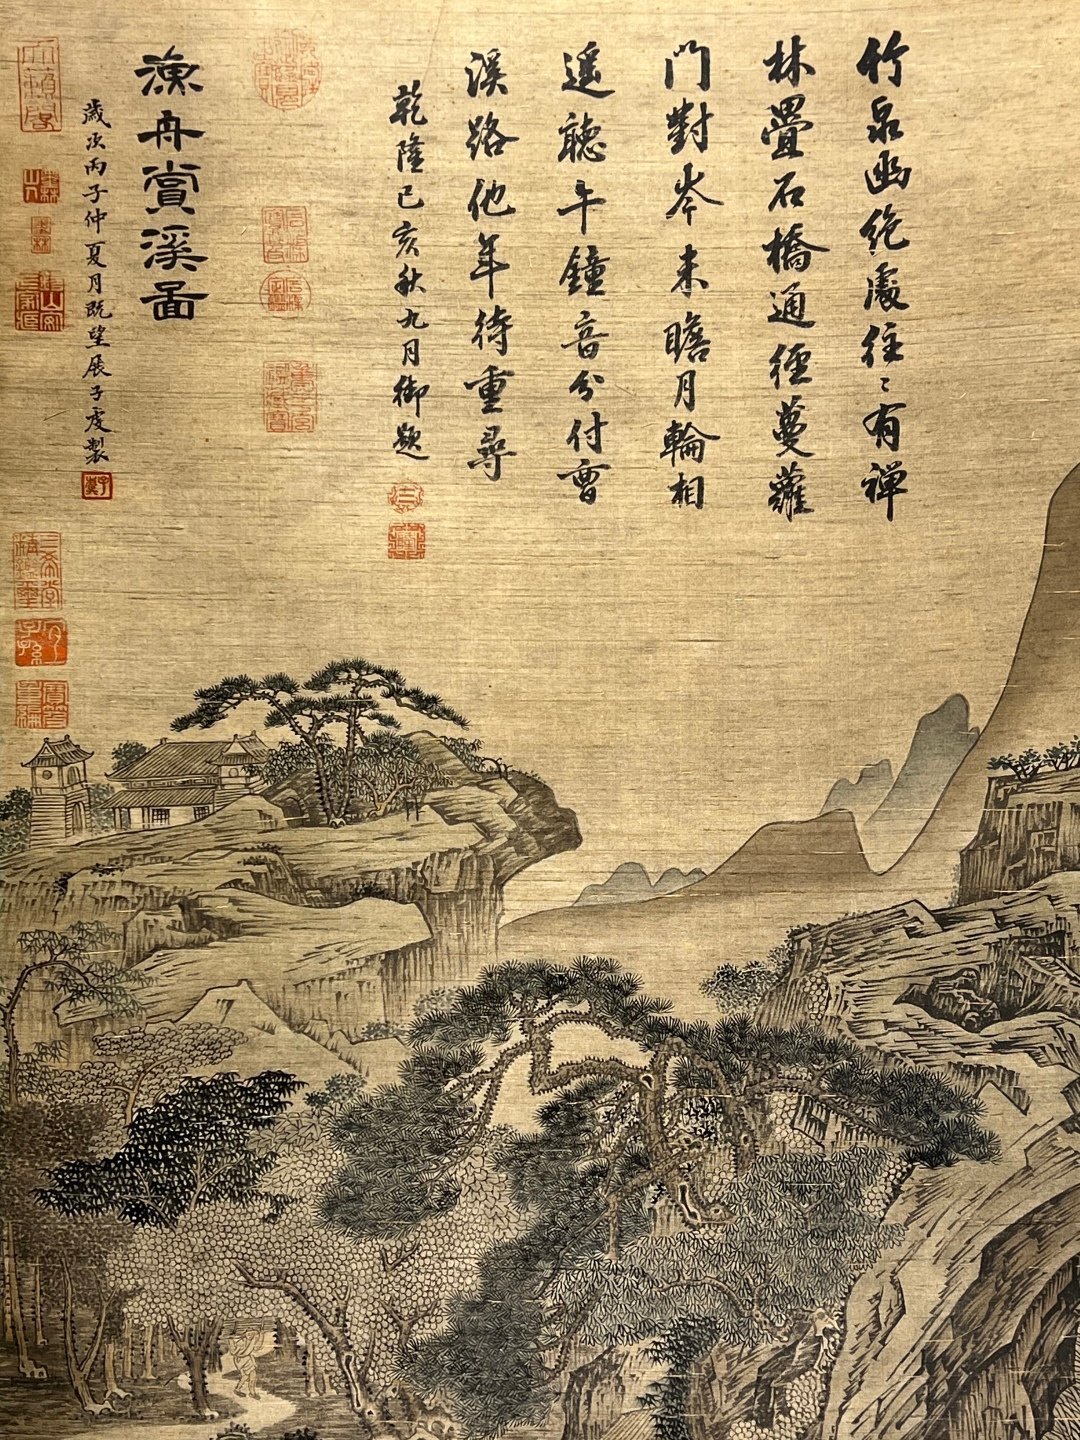 竹泉幽絶處住〻有禅
林疊石橋通徑蔓蘿
门對岑来瞻月輪相
遥聽午鐘音分付曹
溪路他年待重尋
乾隆己亥秋九月御题
漁舟賞溪圖
歳次丙子仲夏月既望展子虔製